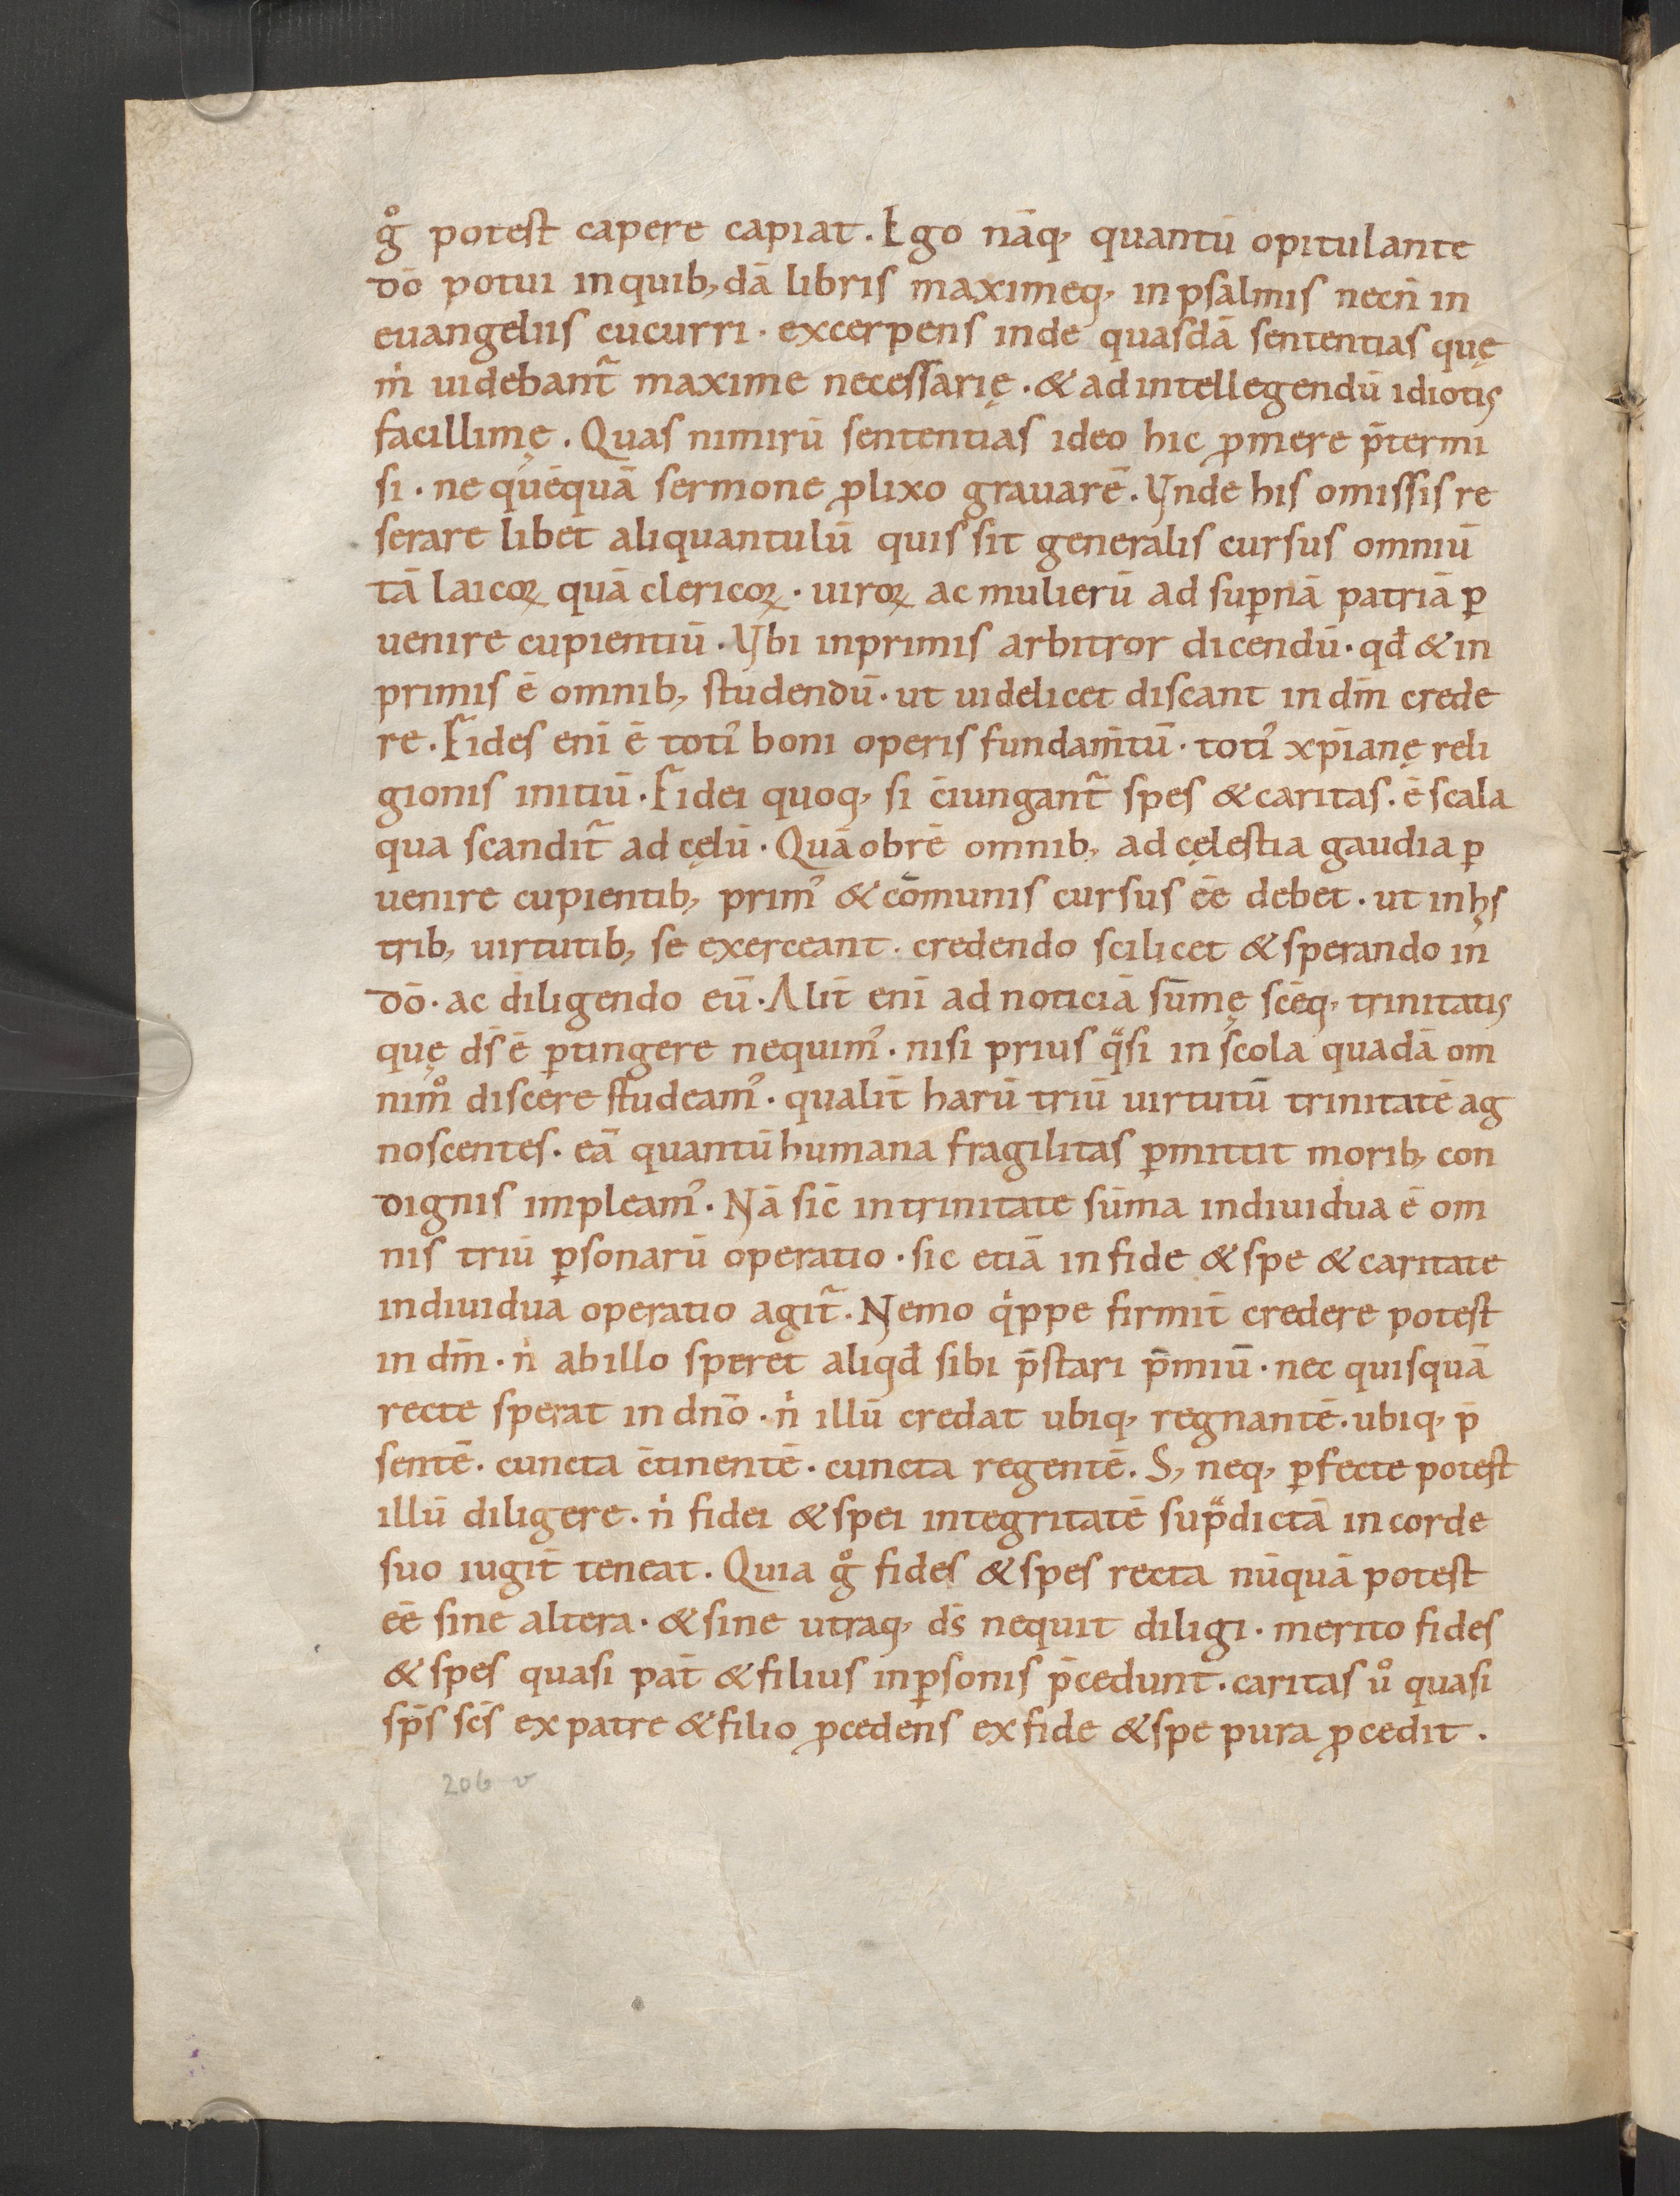 gͦ potest capere capiat. Ego nāq; quantū opitulante
dō potui in quib;dā libris maximeq; in psalmis necn̄ in
euangeliis cucurri · excerpens inde quasdā sententias quę
m̍ uidebant᷑ maxime necessarię · & ad intellegendū idiotis
facillimę. Quas nimirū sententias ideo hic ꝓmere p̄termi
si · ne quēquā sermone ꝓlixo grauarē. Vnde his omissis re
serare libet aliquantulū quis sit generalis cursus omniū
tā laicoꝝ quā clericoꝝ · uiroꝝ ac mulierū ad suꝑnā patriā ꝑ
uenire cupientiū. Vbi inprimis arbitror dicendū · qđ & in
primis ē omnib; studendū · ut uidelicet discant in dm̄ crede
re. Fides enī ē toti᾽ boni operis fundam̄tū · toti᾽ xp̄ianę reli
gionis initiū. Fidei quoq; si c̄iungant᷑ spes & caritas · ē scala
qua scandit᷑ ad cęlū. Quāobrē omnib; ad cęlestia gaudia ꝑ
uenire cupientib; prim᾽ & cōmunis cursus eē debet · ut in hįs
trib; uirtutib; se exerceant · credendo scilicet & sperando in
dō · ac diligendo eū. Alit̄ enī ad noticiā sūmę scēq; trinitatis
quę ds̄ ē ꝑtingere nequim᾽ · nisi prius qͣsi in scola quadā om
nimͦ discere studeam᾽ · qualit̄ harū triū uirtutū trinitatē ag
noscentes · eā quantū humana fragilitas ꝑmittit morib; con
dignis impleam᾽. Nā sic̄ in trinitate sūma indiuidua ē om
nis triū ꝑsonarū operatio · sic etiā in fide & spe & caritate
indiuidua operatio agit᷑. Nemo qͥppe firmit̄ credere potest
in dm̄ · n̍ ab illo speret aliqđ sibi p̄stari p̄miū · nec quisquā
recte sperat in dn̄o · n̍ illū credat ubiq; regnantē · ubiq; p̄
sentē · cuncta c̄tinentē · cuncta regentē. S; neq; ꝑfecte potest
illū diligere · n̍ fidei & spei integritatē supͣdictā in corde
suo iugit̄ teneat. Quia gͦ fides & spes recta nūquā potest
eē sine altera · & sine utraq; ds̄ nequit diligi · merito fides
& spes quasi pat̄ & filius in ꝑsonis p̄cedunt · caritas uͦ quasi
sp̄s sc̄s ex patre & filio ꝓcedens ex fide & spe pura ꝓcedit.
206 v